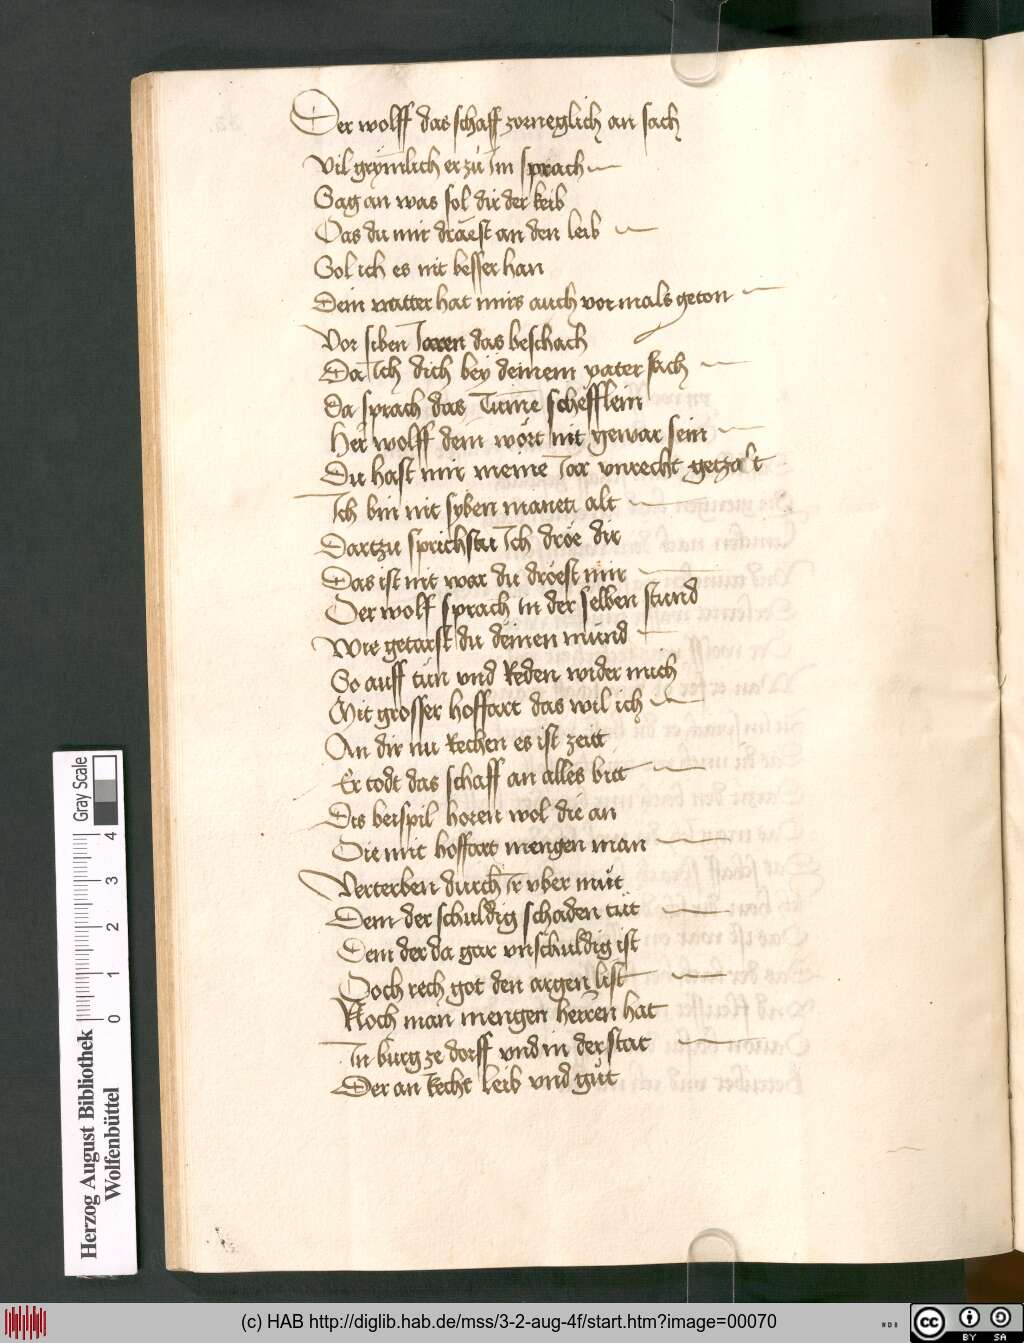 Der wolff das schaff zorneglich an sach
Vil grym̄lich er zů Im sprach
Sag an was sol dir der keib
Das du mir dräest an den leib
Sol ich es nit besser han
Dein vatter hat mirs auch vor mals geton
Vor siben Iaren das beschach
Da Ich dich bey deinem vater sach
Da sprach das Tum̄e schefflein
Her wolff dein wort nit gewar sein
Du hast mir meine Iar vnrecht getzalt
Ich bin nit syben manet alt
Dartzu sprichstu Ich dröe dir
Das ist nit war du dröest mir
Der wolf sprach in der selben stund
Wie getarst du deinen mund
So auff tun vnd Reden wider mich
Mit grosser hoffart das wil ich
An dir nu Rechen es ist zeitt
Er todt das schaff an alles bitt
Dis beispil horen wol die an
Die mit hoffart mengen man
Verterben durch Ir vber můt
Dem der schuldig schaden tůt
Dem der da gar vnschuldig ist
Doch rech got den argen list
Noch man mengen herren hat
In burg ze dorff vnd in der stat
Der an Recht leib vnd gůt
Herzog August Bibliothek
Wolfenbüttel
0 1 2 3 4
Gray Scale
(c) HAB http://diglib.hab.de/mss/3-2-aug-4f/start.htm?image=00070
WDB
cc BY SA